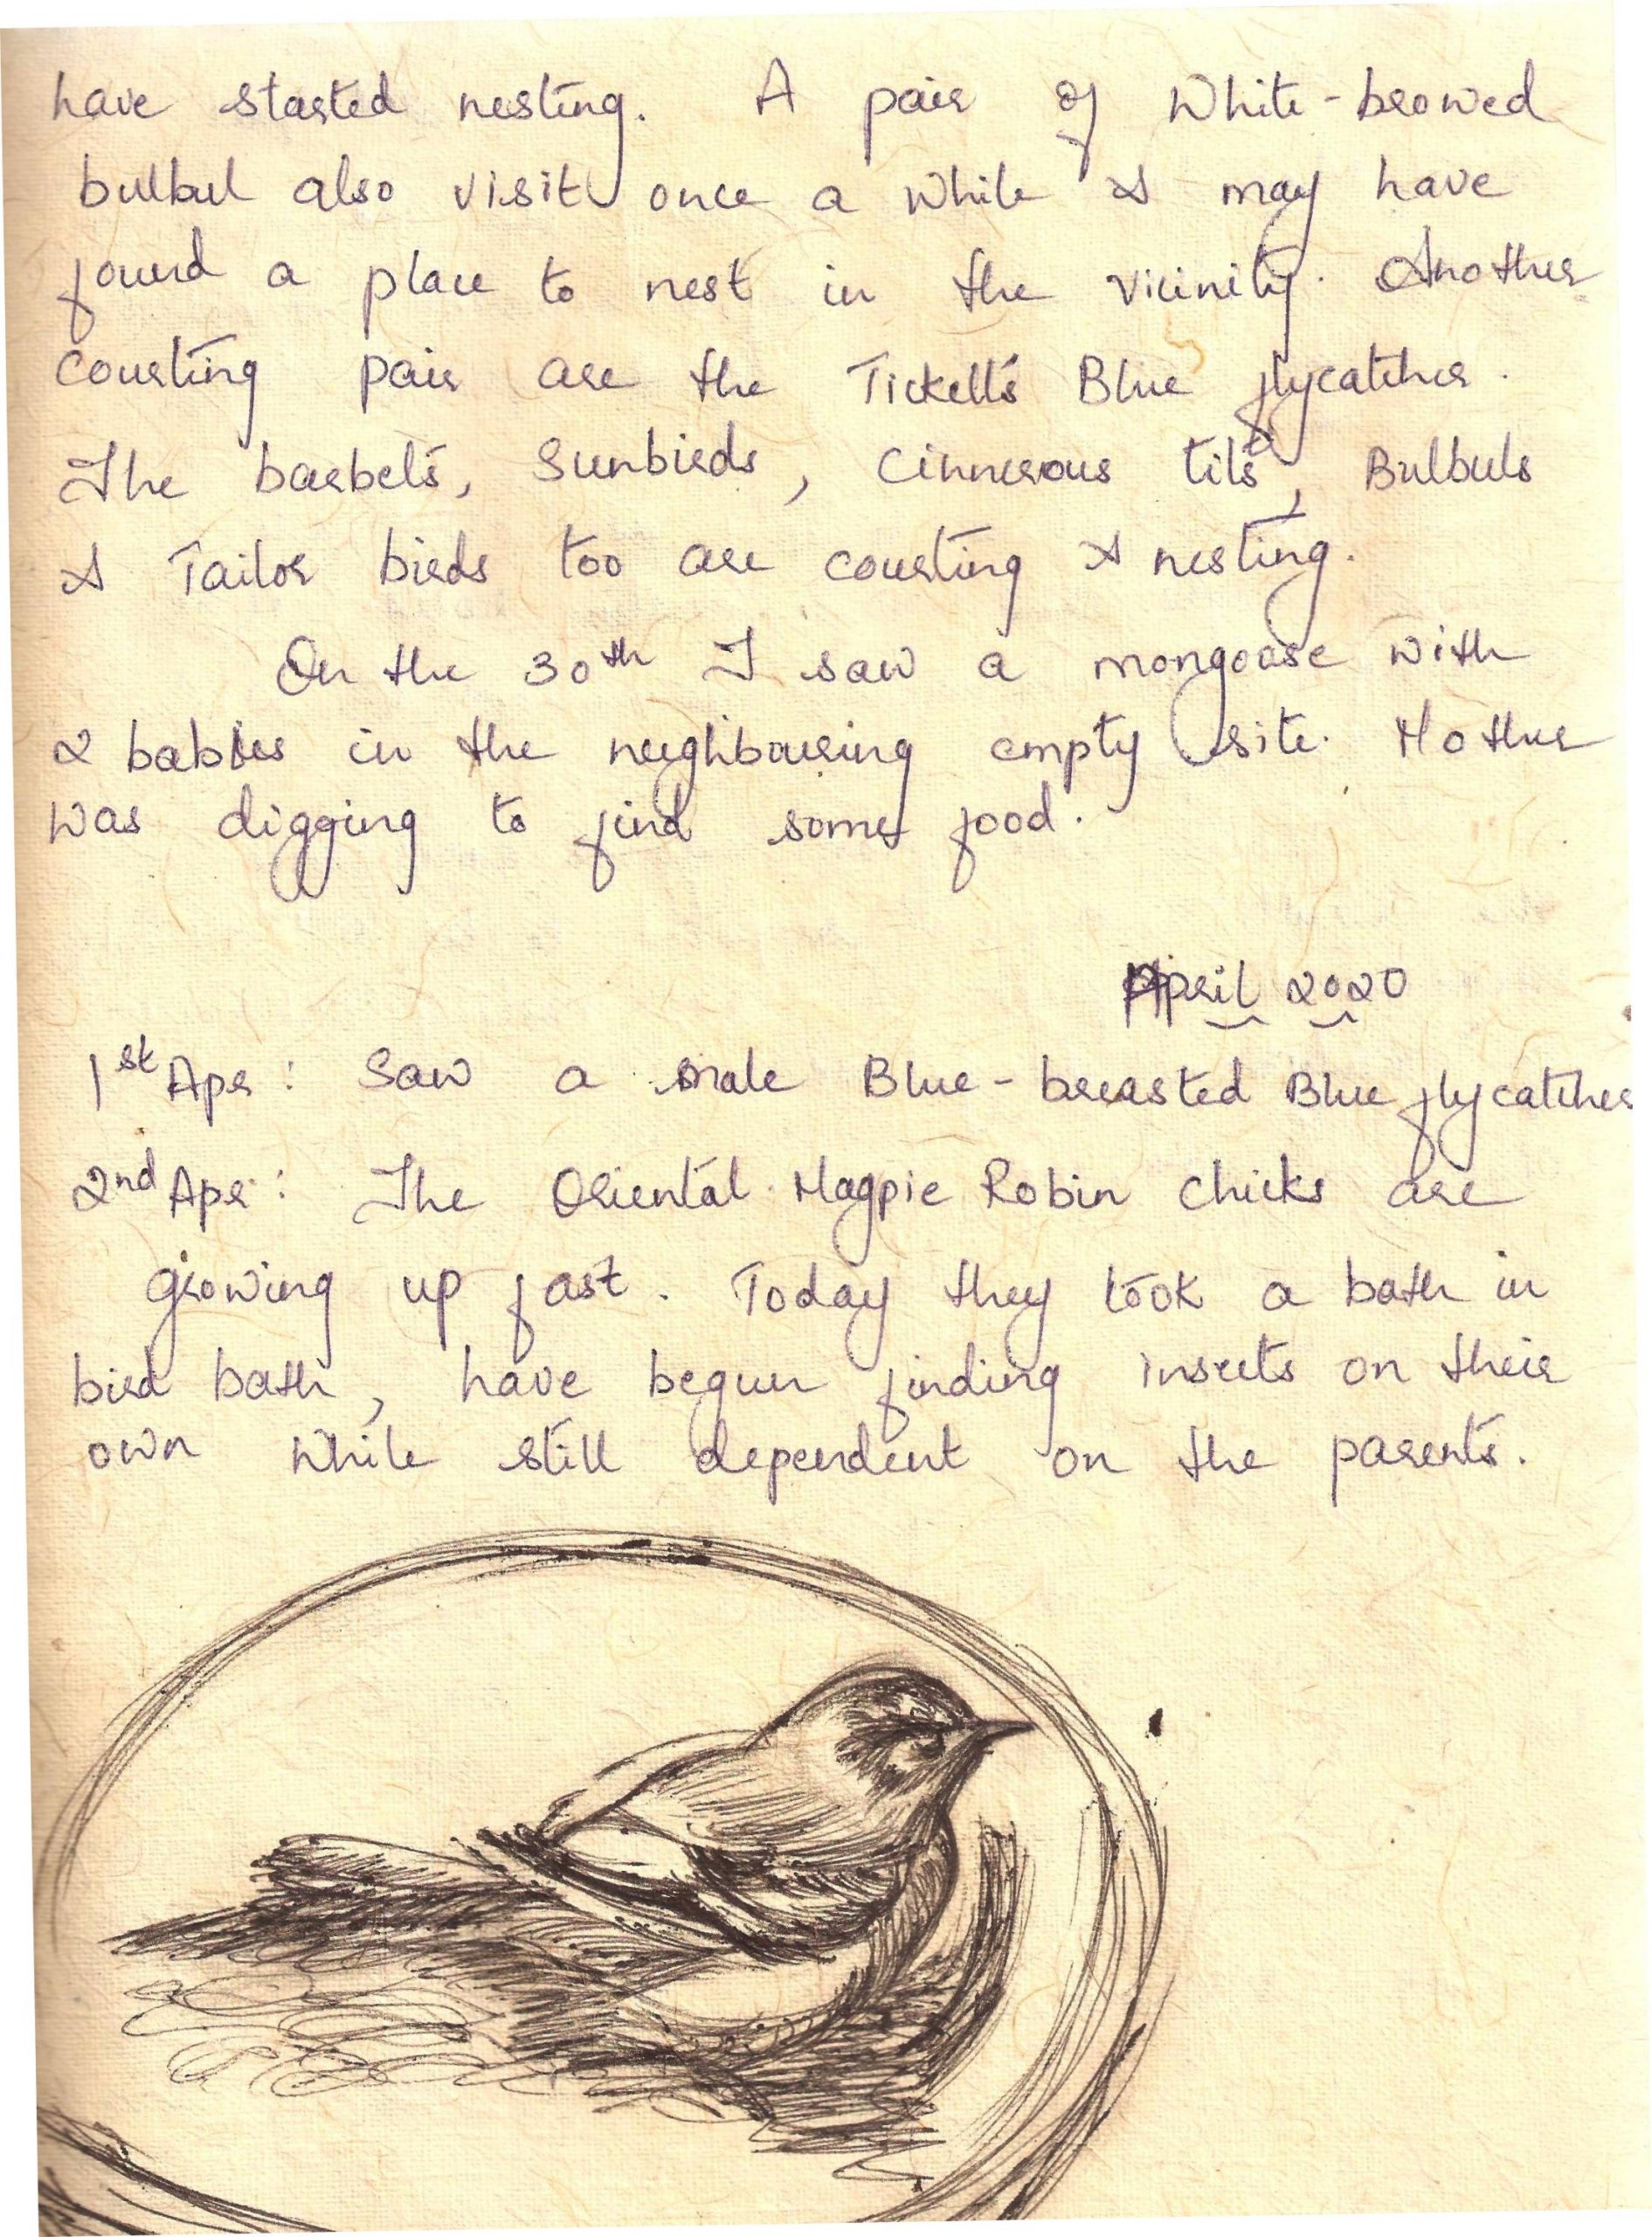 have started nesting. A pair of White-browed
bulbul also visit once a while & may have
found a place to nest in the vicinity. Another
courting pair are the Tickell's Blue flycatcher.
The barbets, Sunbirds, Cinnerous tits, Bulbuls
& Tailor birds too are courting & nesting.
On the 30th I saw a mongoose with
2 babies in the neighbouring empty site. Mother
was digging to find some food.
April 2020
1st Apr: Saw a male Blue-breasted Blue flycatcher
2nd Apr: The Oriental Magpie Robin chicks are
growing up fast. Today they took a bath in
bird bath, have begun finding insects on their
own while still dependent on the parents.